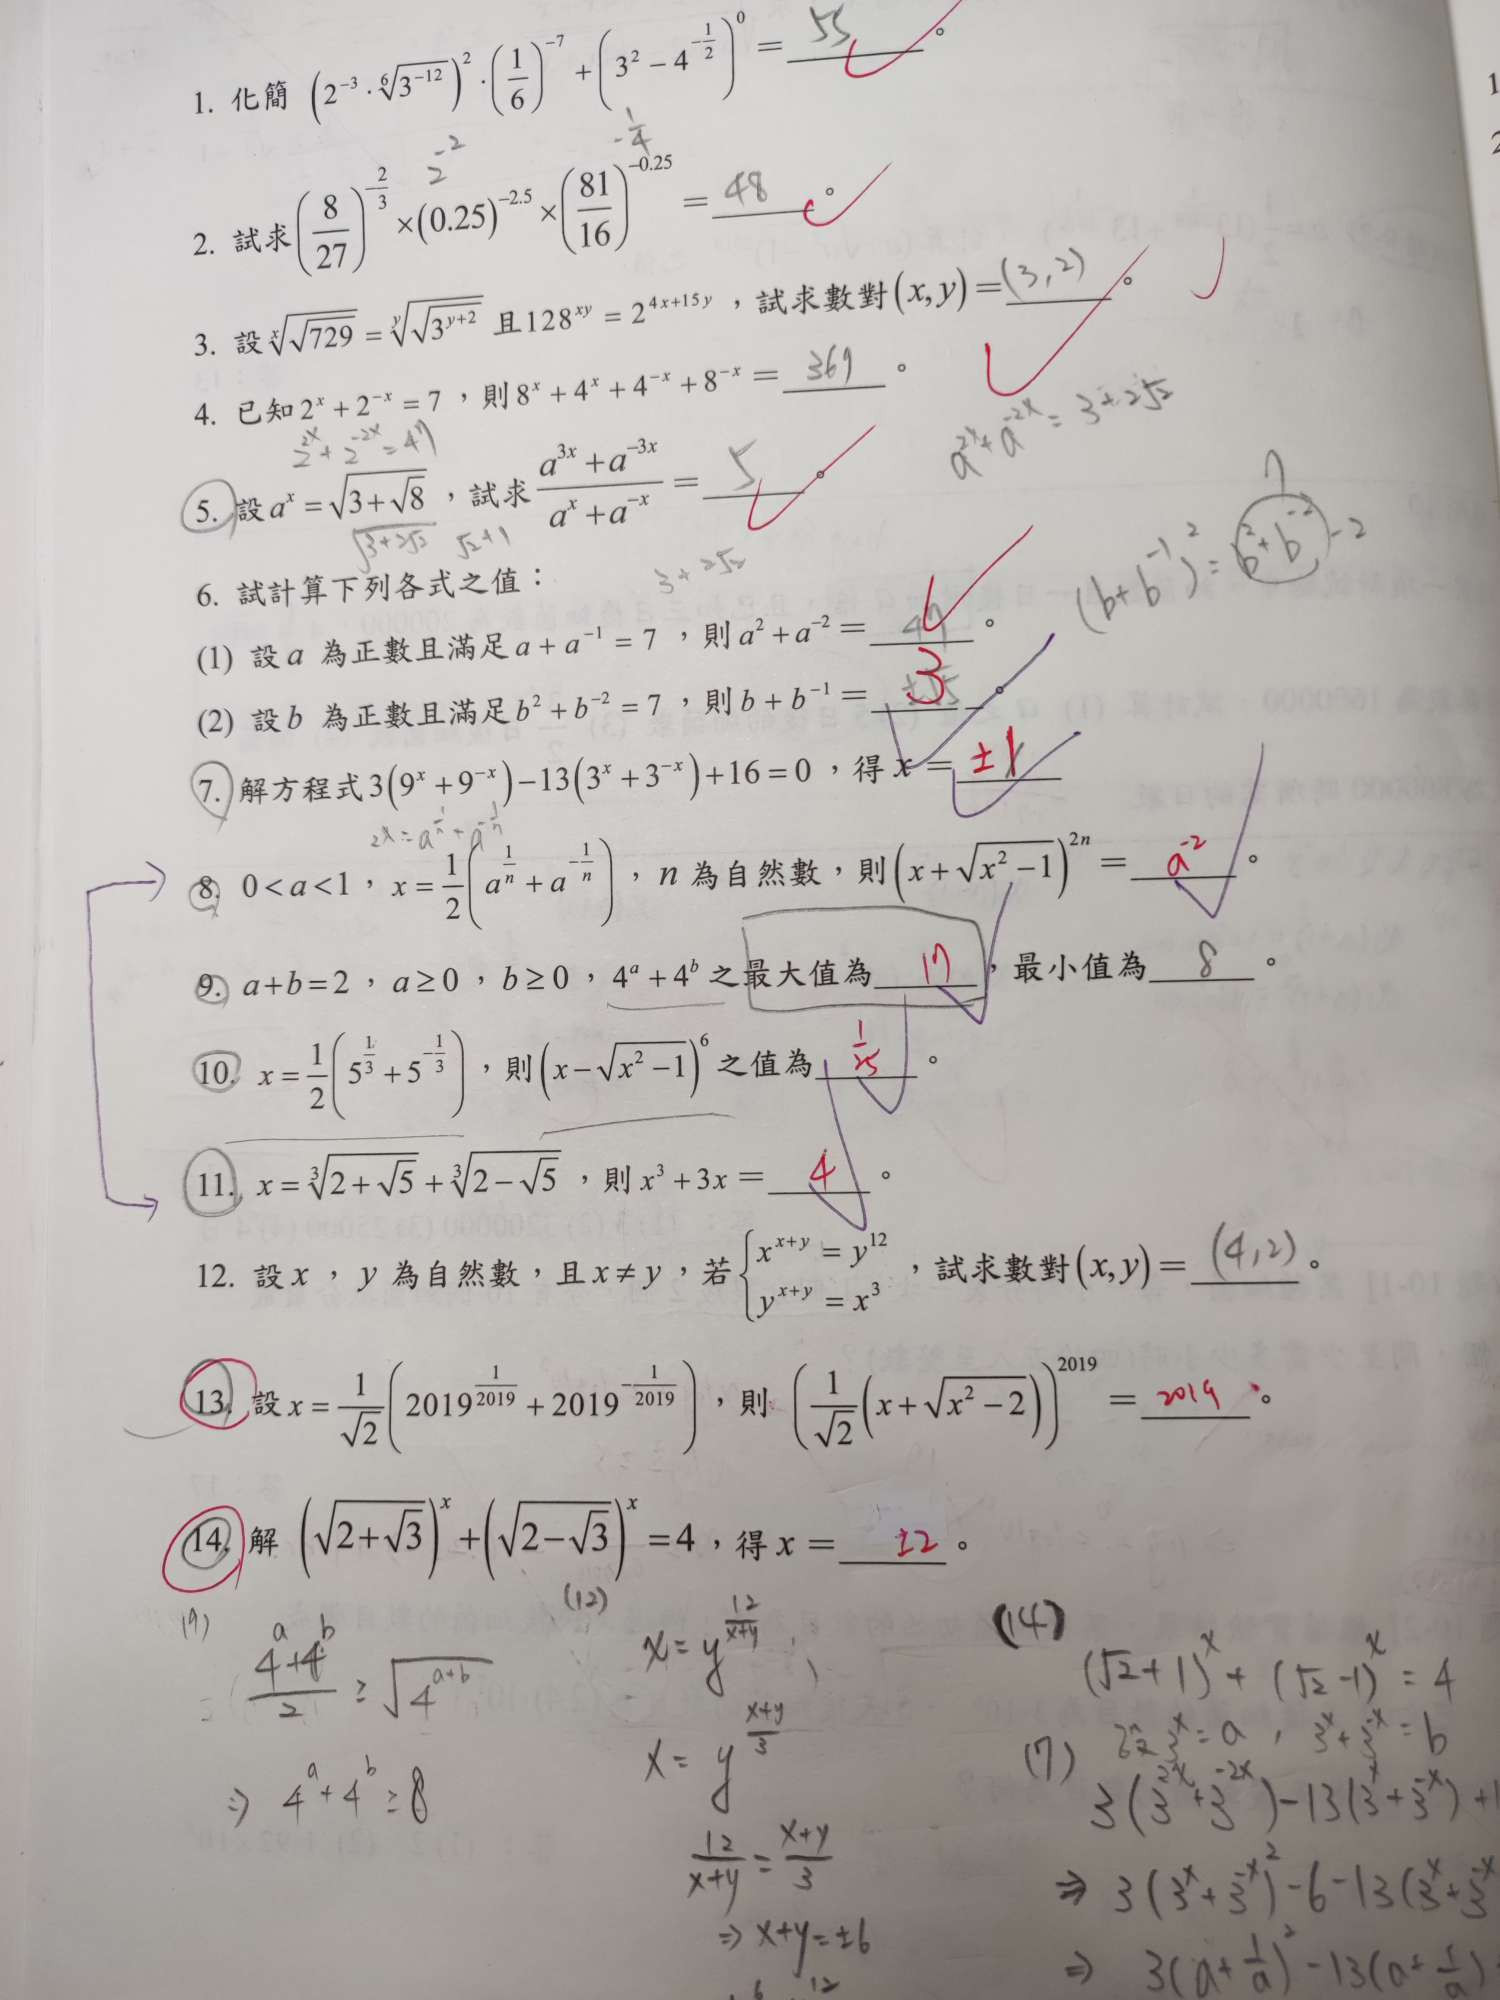 1. 化簡 (2⁻³ · ⁶√(3⁻¹²))² · (1/6)⁻⁷ + (3² − 4^(−1/2))⁰ = 55 。
2⁻² −1/4
2. 試求 (8/27)^(−2/3) × (0.25)^(−2.5) × (81/16)^(−0.25) = 48 。
3. 設 ˣ√(√729) = ʸ√(√(3^(y+2))) 且 128^(xy) = 2^(4x+15y) ，試求數對 (x, y) = (3, 2) 。
4. 已知 2ˣ + 2⁻ˣ = 7 ，則 8ˣ + 4ˣ + 4⁻ˣ + 8⁻ˣ = 369 。
2^(2x) + 2^(−2x) = 47
a^(2x) + a^(−2x) = 3+2√2
5. 設 aˣ = √(3+√8) ，試求 (a^(3x) + a^(−3x))/(aˣ + a⁻ˣ) = 5 。
√(3+2√2) √2+1
3+2√2
(b+b⁻¹)² = b²+b⁻² −2
7
6. 試計算下列各式之值：
(1) 設 a 為正數且滿足 a + a⁻¹ = 7 ，則 a² + a⁻² = 47 。
(2) 設 b 為正數且滿足 b² + b⁻² = 7 ，則 b + b⁻¹ = 3 。
7. 解方程式 3(9ˣ + 9⁻ˣ) − 13(3ˣ + 3⁻ˣ) + 16 = 0 ，得 x = ±1
2x = a^(1/n) + a^(−1/n)
8. 0 < a < 1 ， x = 1/2 (a^(1/n) + a^(−1/n)) ， n 為自然數，則 (x + √(x² − 1))^(2n) = a⁻² 。
9. a + b = 2 ， a ≥ 0 ， b ≥ 0 ， 4ᵃ + 4ᵇ 之最大值為 17 ，最小值為 8 。
10. x = 1/2 (5^(1/3) + 5^(−1/3)) ，則 (x − √(x² − 1))⁶ 之值為 1/25 。
11. x = ³√(2+√5) + ³√(2−√5) ，則 x³ + 3x = 4 。
12. 設 x ， y 為自然數，且 x ≠ y ，若 { x^(x+y) = y¹² , y^(x+y) = x³ ，試求數對 (x, y) = (4, 2) 。
13. 設 x = 1/√2 (2019^(1/2019) + 2019^(−1/2019)) ，則 (1/√2 (x + √(x² − 2)))^2019 = 2019 。
14. 解 (√(2+√3))ˣ + (√(2−√3))ˣ = 4 ，得 x = ±2 。
(9)
(4ᵃ+4ᵇ)/2 ≥ √(4^(a+b))
⇒ 4ᵃ+4ᵇ ≥ 8
(12)
x = y^(12/(x+y))
x = y^((x+y)/3)
12/(x+y) = (x+y)/3
⇒ x+y = ±6
(14)
(√2+1)ˣ + (√2−1)ˣ = 4
(7) 設 3ˣ = a , 3ˣ+3⁻ˣ = b
3(3^(2x)+3^(−2x)) −13(3ˣ+3⁻ˣ)+1
⇒ 3(3ˣ+3⁻ˣ)² −6−13(3ˣ+3⁻ˣ
⇒ 3(a+1/a)² −13(a+1/a)